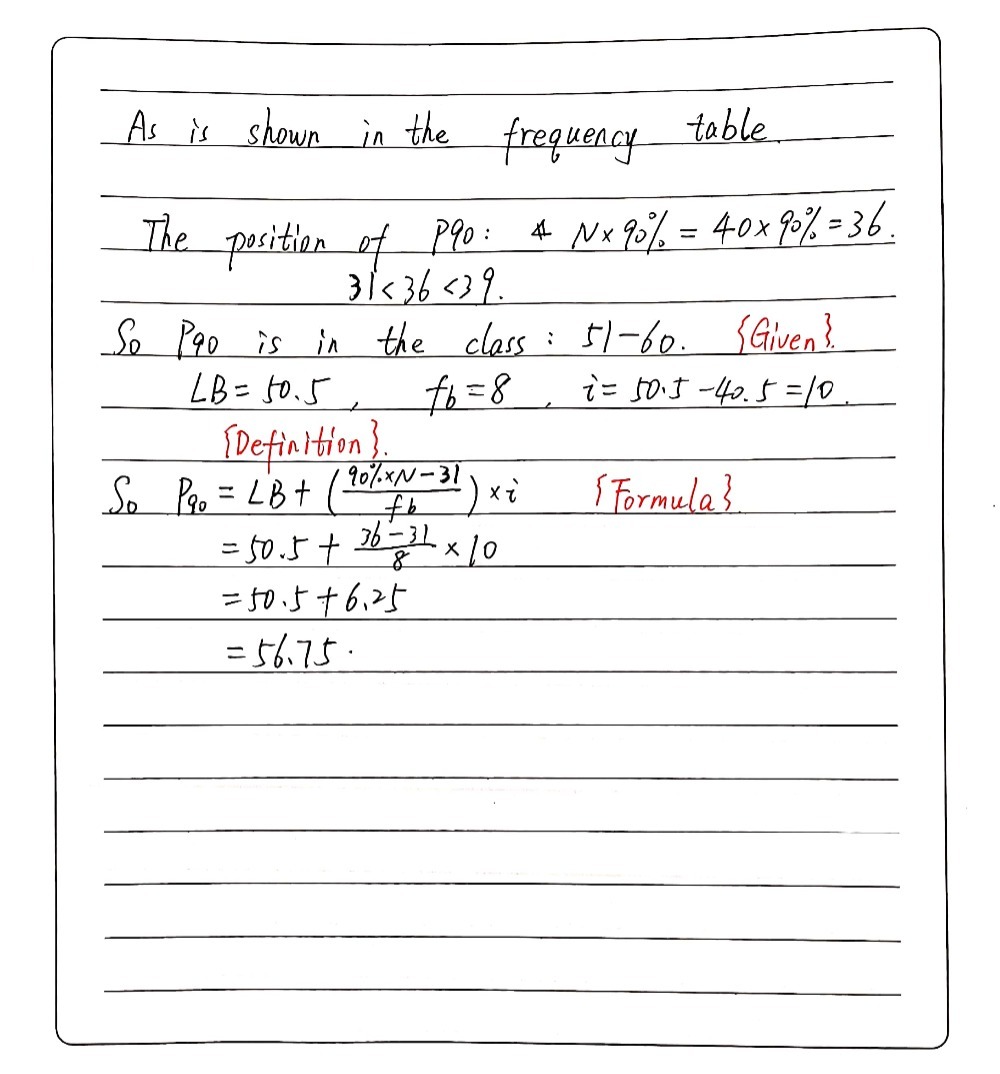 As is shown in the frequency table.
The position of P90: N×90% = 40×90% = 36.
31<36<39.
So P90 is in the class: 51-60. {Given}.
LB = 50.5, fb = 8, i = 50.5-40.5 = 10.
{Definition}.
So P90 = LB + (90%×N-31 / fb) × i {Formula}
= 50.5 + 36-31 / 8 × 10
= 50.5 + 6.25
= 56.75.